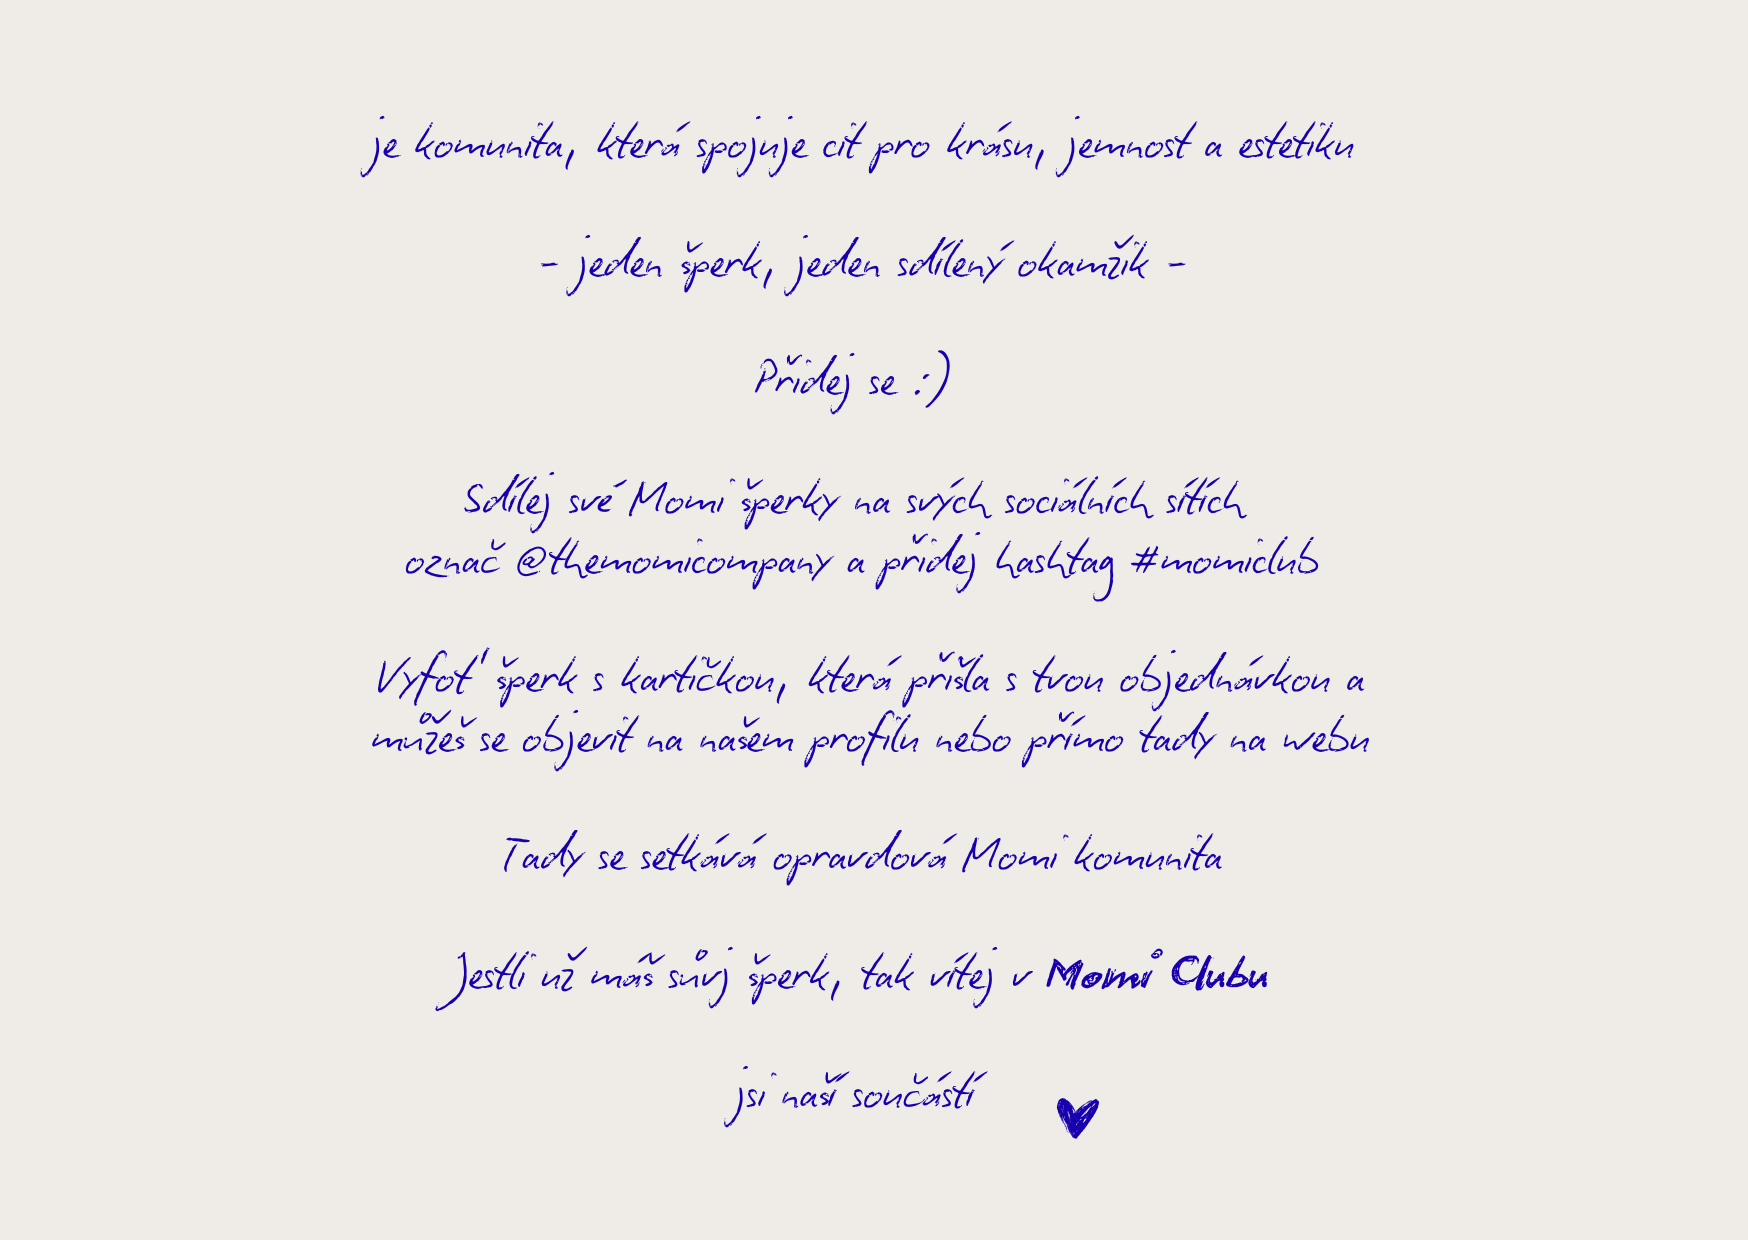 je komunita, která spojuje cit pro krásu, jemnost a estetiku
- jeden šperk, jeden sdílený okamžik -
Přidej se :)
Sdílej své Momi šperky na svých sociálních sítích
označ @themomicompany a přidej hashtag #momiclub
Vyfoť šperk s kartičkou, která přišla s tvou objednávkou a
můžeš se objevit na našem profilu nebo přímo tady na webu
Tady se setkává opravdová Momi komunita
Jestli už máš svůj šperk, tak vítej v Momi Clubu
jsi naší součástí